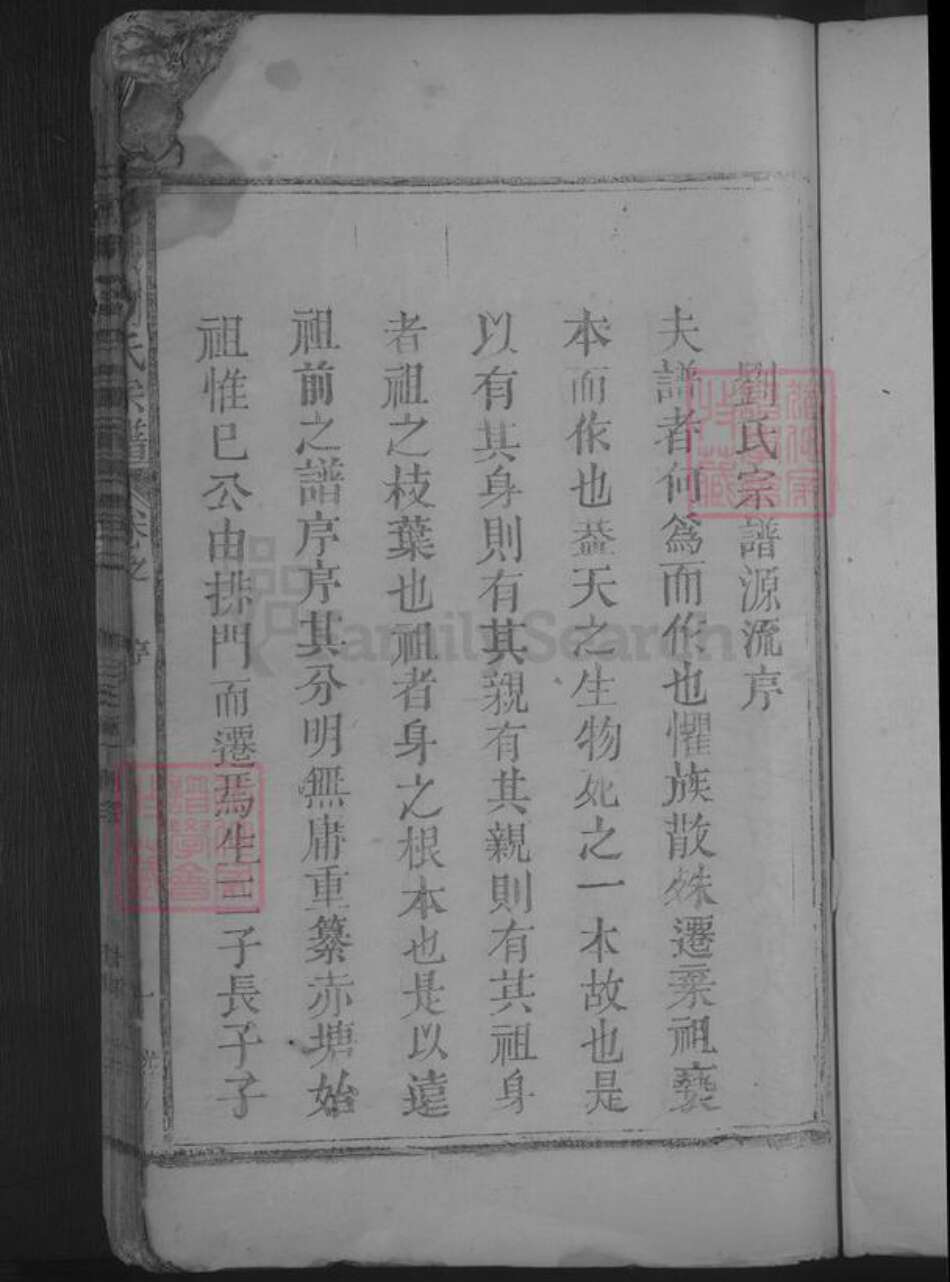 劉氏宗譜源流序
夫譜者何爲而作也懼族散姝遷棄祖褻
本而作也蓋天之生物死之一本故也是
以有其身則有其親有其親則有其祖身
者祖之枝葉也祖者身之根本也是以遠
祖前之譜序序其分明無庸重纂赤塘始
祖惟巳公由排門而遷焉生三子長子子
劉氏宗譜 卷之 序
FamilySearch